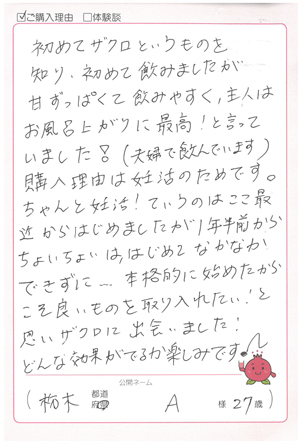 ☑ご購入理由 □体験談
初めてザクロというものを
知り、初めて飲みましたが
甘ずっぱくて飲みやすく、主人は
お風呂上がりに最高！と言って
いました！（夫婦で飲んでいます）
購入理由は妊活のためです。
ちゃんと妊活！ていうのはここ最
近からはじめましたが1年半前から
ちょいちょいははじめてなかなか
できずに…、本格的に始めたから
こそ良いものを取り入れたい！と
思いザクロに出会いました！
どんな効果がでるか楽しみです。
公開ネーム
（栃木 都道府県 A 様 27歳）